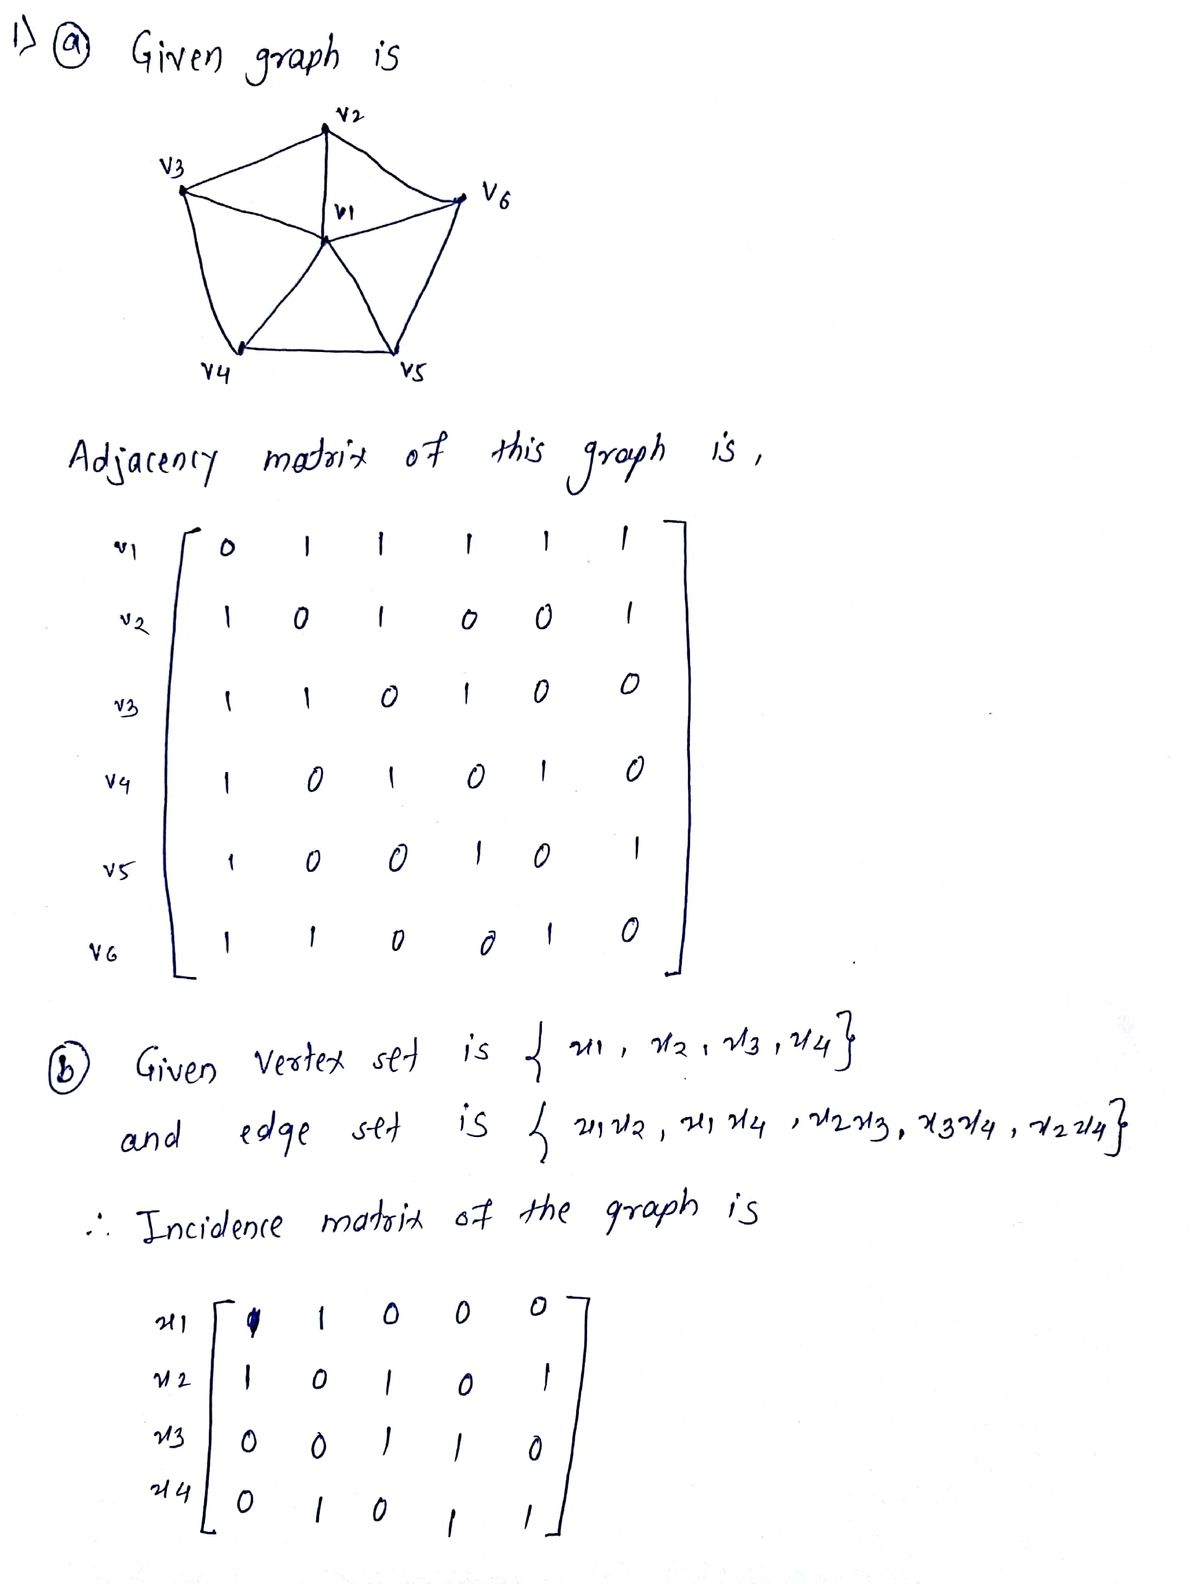 1) (a) Given graph is
v2
v3
v6
v1
v4
v5
Adjacency matrix of this graph is,
v1 0 1 1 1 1 1
v2 1 0 1 0 0 1
v3 1 1 0 1 0 0
v4 1 0 1 0 1 0
v5 1 0 0 1 0 1
v6 1 1 0 0 1 0
(b) Given vertex set is { x1, x2, x3, x4}
and edge set is { x1x2, x1x4, x2x3, x3x4, x2x4}
∴ Incidence matrix of the graph is
x1 1 1 0 0 0
x2 1 0 1 0 1
x3 0 0 1 1 0
x4 0 1 0 1 1